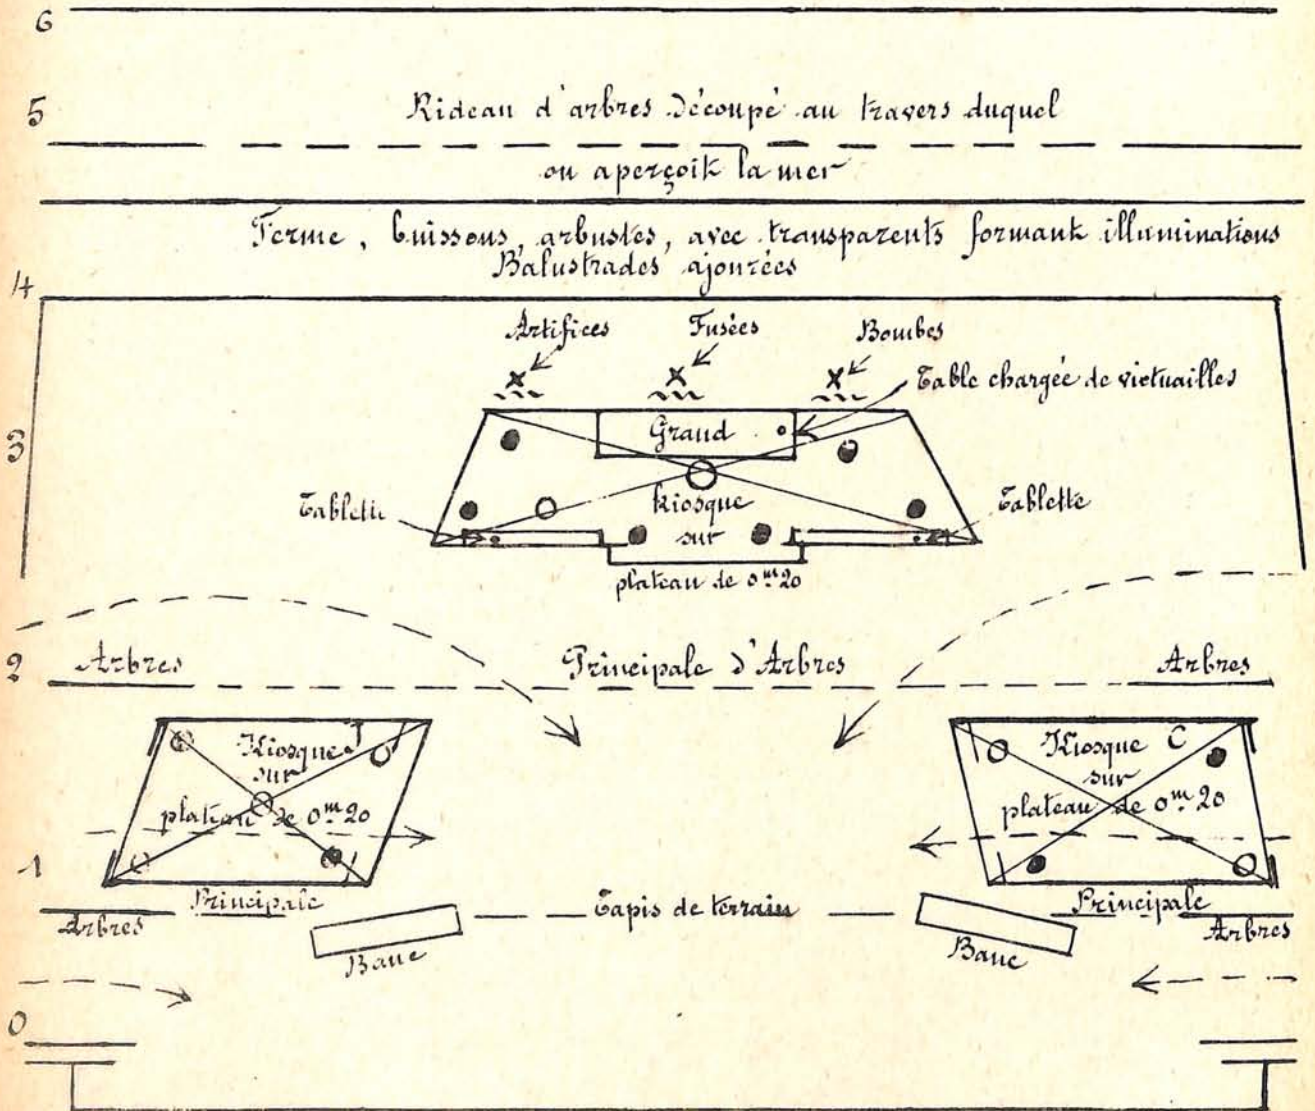 6
5
Rideau d'arbres découpé au travers duquel
on aperçoit la mer
Ferme, buissons, arbustes, avec transparents formant illuminations
Balustrades ajourées
4
Artifices Fusées Bombes
Table chargée de victuailles
3
Grand
kiosque
sur
plateau de 0m20
Tablette
Tablette
2
Arbres Principale d'Arbres Arbres
Kiosque
sur
plateau de 0m20
Kiosque C
sur
plateau de 0m20
1
Principale
Arbres
Tapis de terrain
Principale
Arbres
Banc
Banc
0